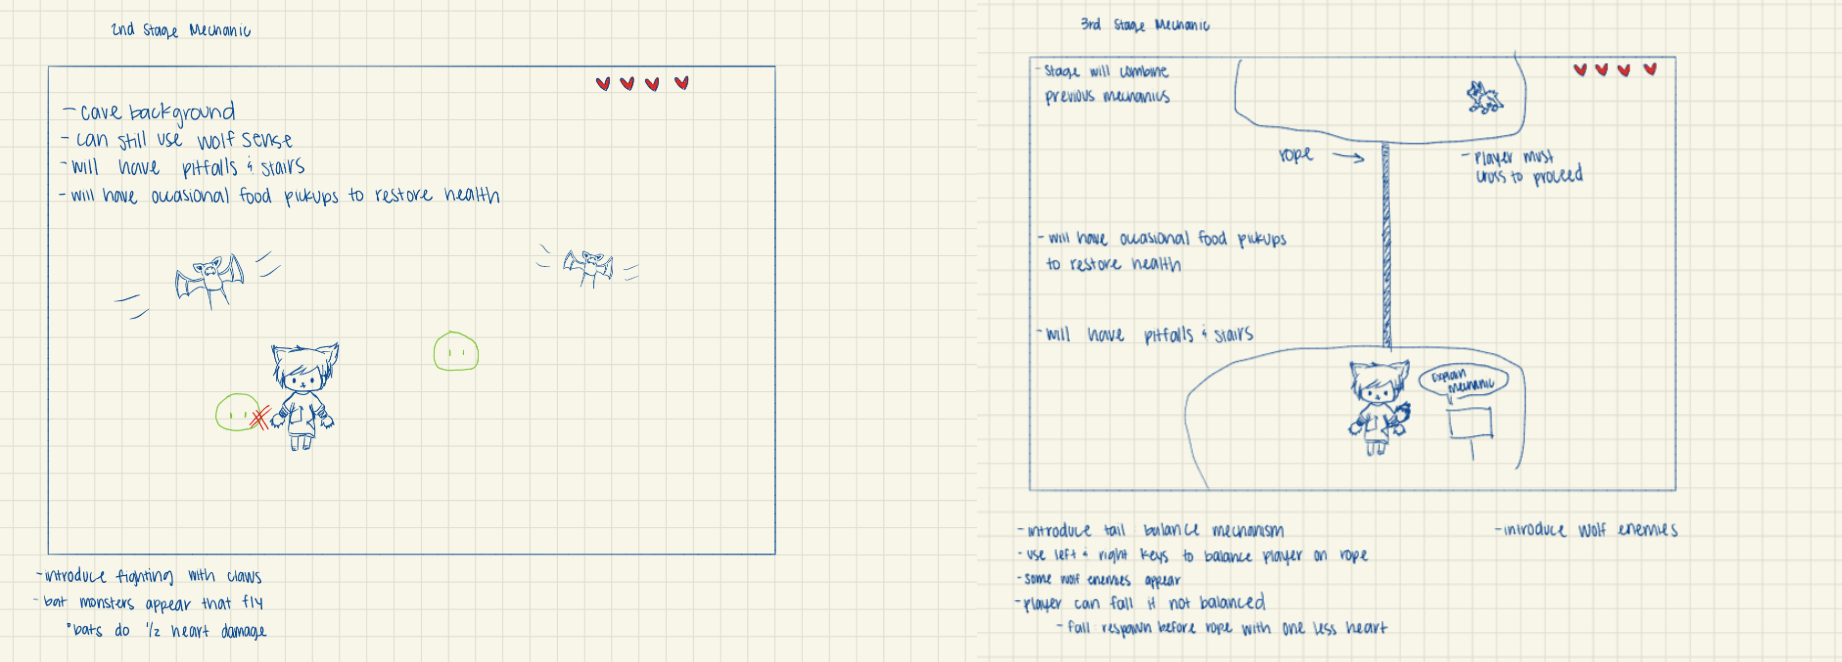 2nd Stage Mechanic
- cave background
- can still use wolf sense
- will have pitfalls & stairs
- will have occasional food pickups to restore health
- introduce fighting with claws
- bat monsters appear that fly
*bats do 1/2 heart damage
3rd Stage Mechanic
- stage will combine
previous mechanics
rope
- player must
cross to proceed
- will have occasional food pickups
to restore health
- will have pitfalls & stairs
explain
mechanic
- introduce tail balance mechanism
- use left & right keys to balance player on rope
- some wolf enemies appear
- player can fall if not balanced
- fall respawn before rope with one less heart
- introduce wolf enemies